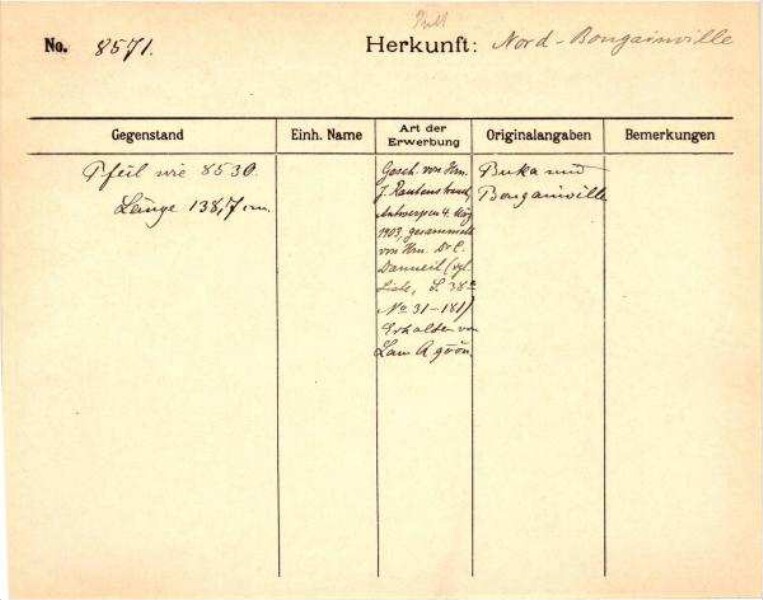 No. 8571. Herkunft: Nord-Bougainville
Gegenstand Einh. Name Art der Erwerbung Originalangaben Bemerkungen
Pfeil wie 8530.
Länge 138,7 cm.
Gesch. von Hrn.
J. Rautenstrauch,
Antwerpen 4. März
1903, gesammelt
von Hrn. Dr C.
Danneil (vgl.
Liste, S. 38
No 31-181)
Erhalten von
Buka und
Bougainville